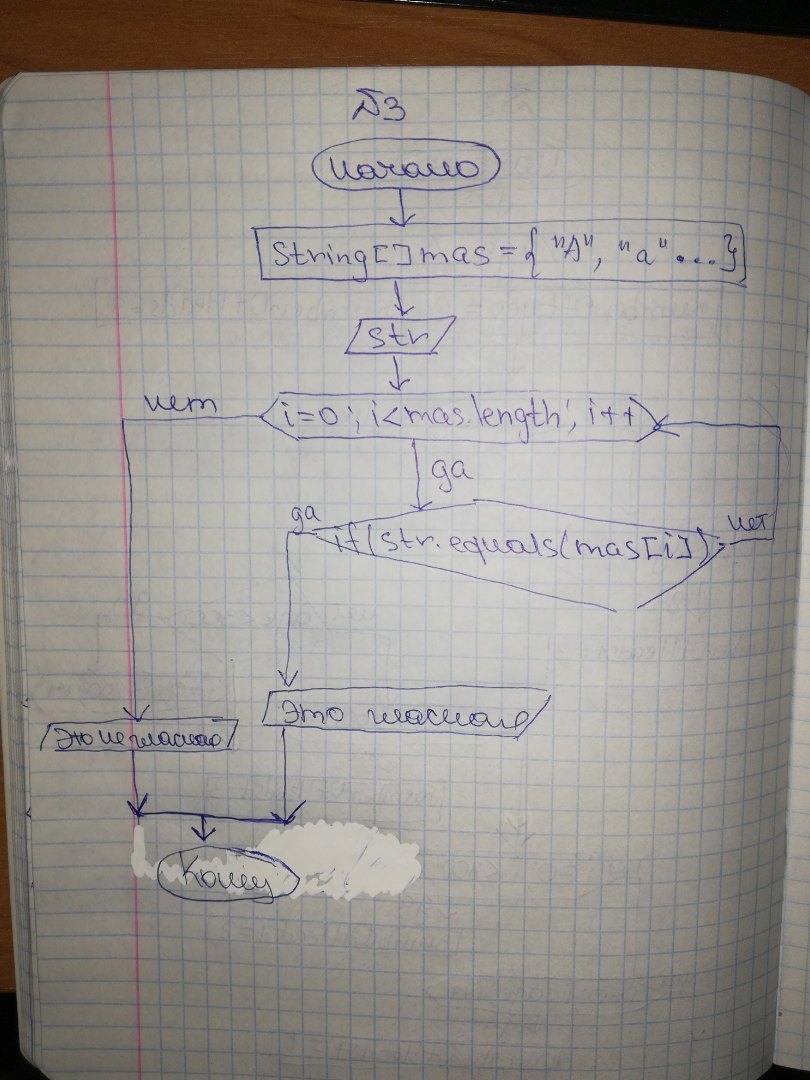 №3
Начало
String[] mas = { "A", "a" ... }
str
нет
i=0; i<mas.length; i++
да
да
if(str.equals(mas[i])
нет
Это гласная
Это не гласная
Конец